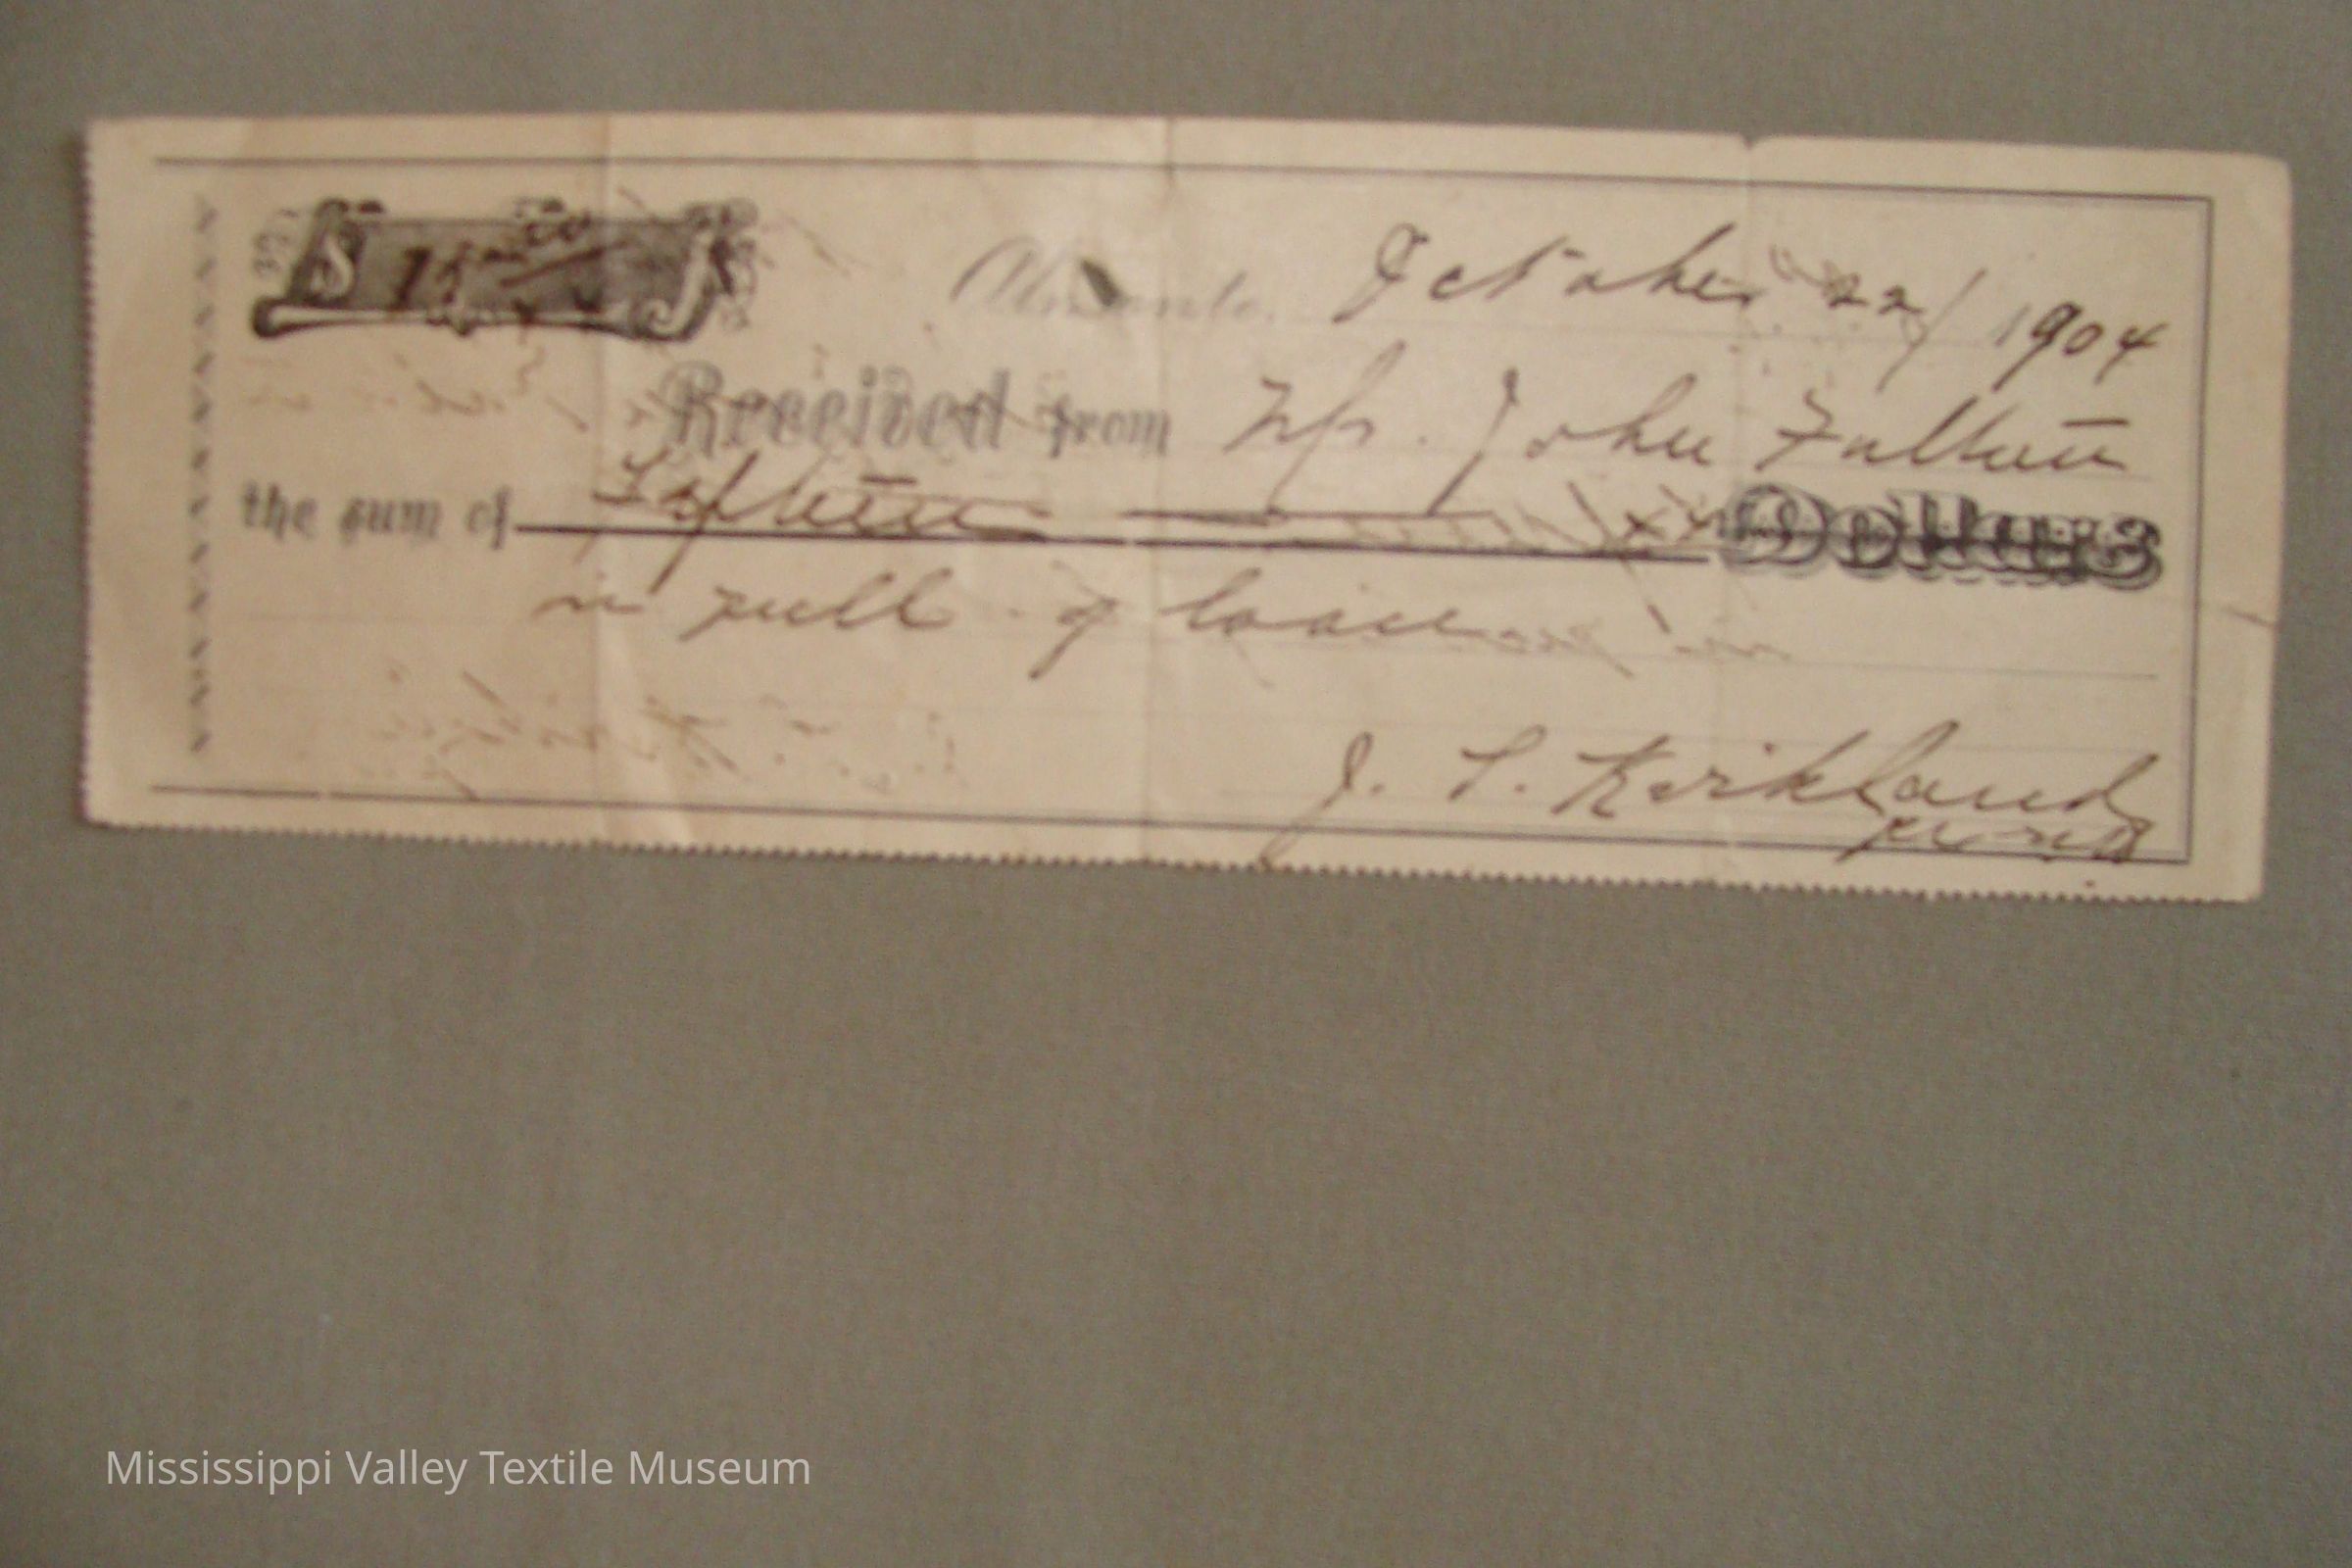 $ 15 00/xx
Almonte. October 22/ 1904
Received from Mr. John Fulton
the sum of Fifteen xx Dollars
in full of loan
J. T. Kirkland
Mississippi Valley Textile Museum